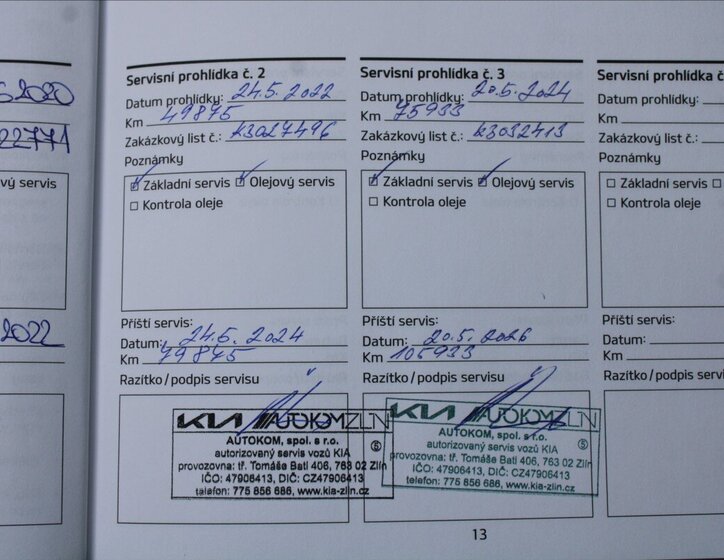 2020
22771
vý servis
2022
Servisní prohlídka č. 2
Datum prohlídky: 24.5. 2022
Km 49875
Zakázkový list č.: K3027496
Poznámky
Základní servis Olejový servis
Kontrola oleje
Příští servis:
Datum: 24.5. 2024
Km 79875
Razítko / podpis servisu
KIA AUTOKOMZLIN
AUTOKOM, spol. s r.o.
autorizovaný servis vozů KIA
provozovna: tř. Tomáše Bati 406, 763 02 Zlín
IČO: 47906413, DIČ: CZ47906413
telefon: 775 856 686, www.kia-zlin.cz
5
Servisní prohlídka č. 3
Datum prohlídky: 20.5. 2024
Km 75933
Zakázkový list č.: K3032413
Poznámky
Základní servis Olejový servis
Kontrola oleje
Příští servis:
Datum: 20.5. 2026
Km 105933
Razítko / podpis servisu
KIA AUTOKOMZLIN
AUTOKOM, spol. s r.o.
autorizovaný servis vozů KIA
provozovna: tř. Tomáše Bati 406, 763 02 Zlín
IČO: 47906413, DIČ: CZ47906413
telefon: 775 856 686, www.kia-zlin.cz
5
Servisní prohlídka č
Datum prohlídky:
Km
Zakázkový list č.:
Poznámky
Základní servis
Kontrola oleje
Příští servis:
Datum:
Km
Razítko / podpis servisu
13